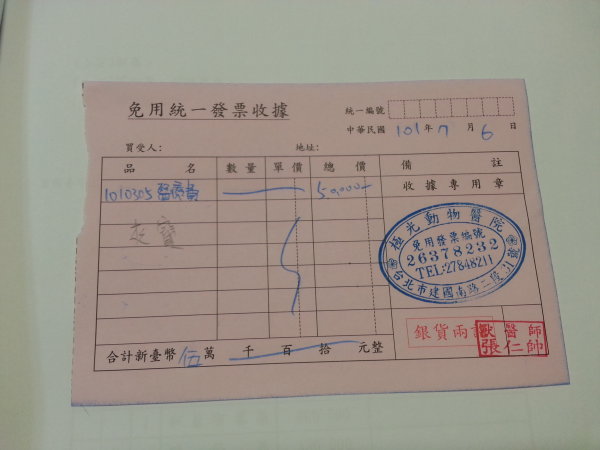 免用統一發票收據
統一編號
中華民國 101 年 7 月 6 日
買受人: 地址:
品名 數量 單價 總價 備註
1010305 醫療費 50,000 收據專用章
極光動物醫院
免用發票編號
26378232
TEL:27848211
台北市建國南路二段31號
銀貨兩訖
獸醫師
張仁帥
合計新臺幣 伍 萬 千 百 拾 元整